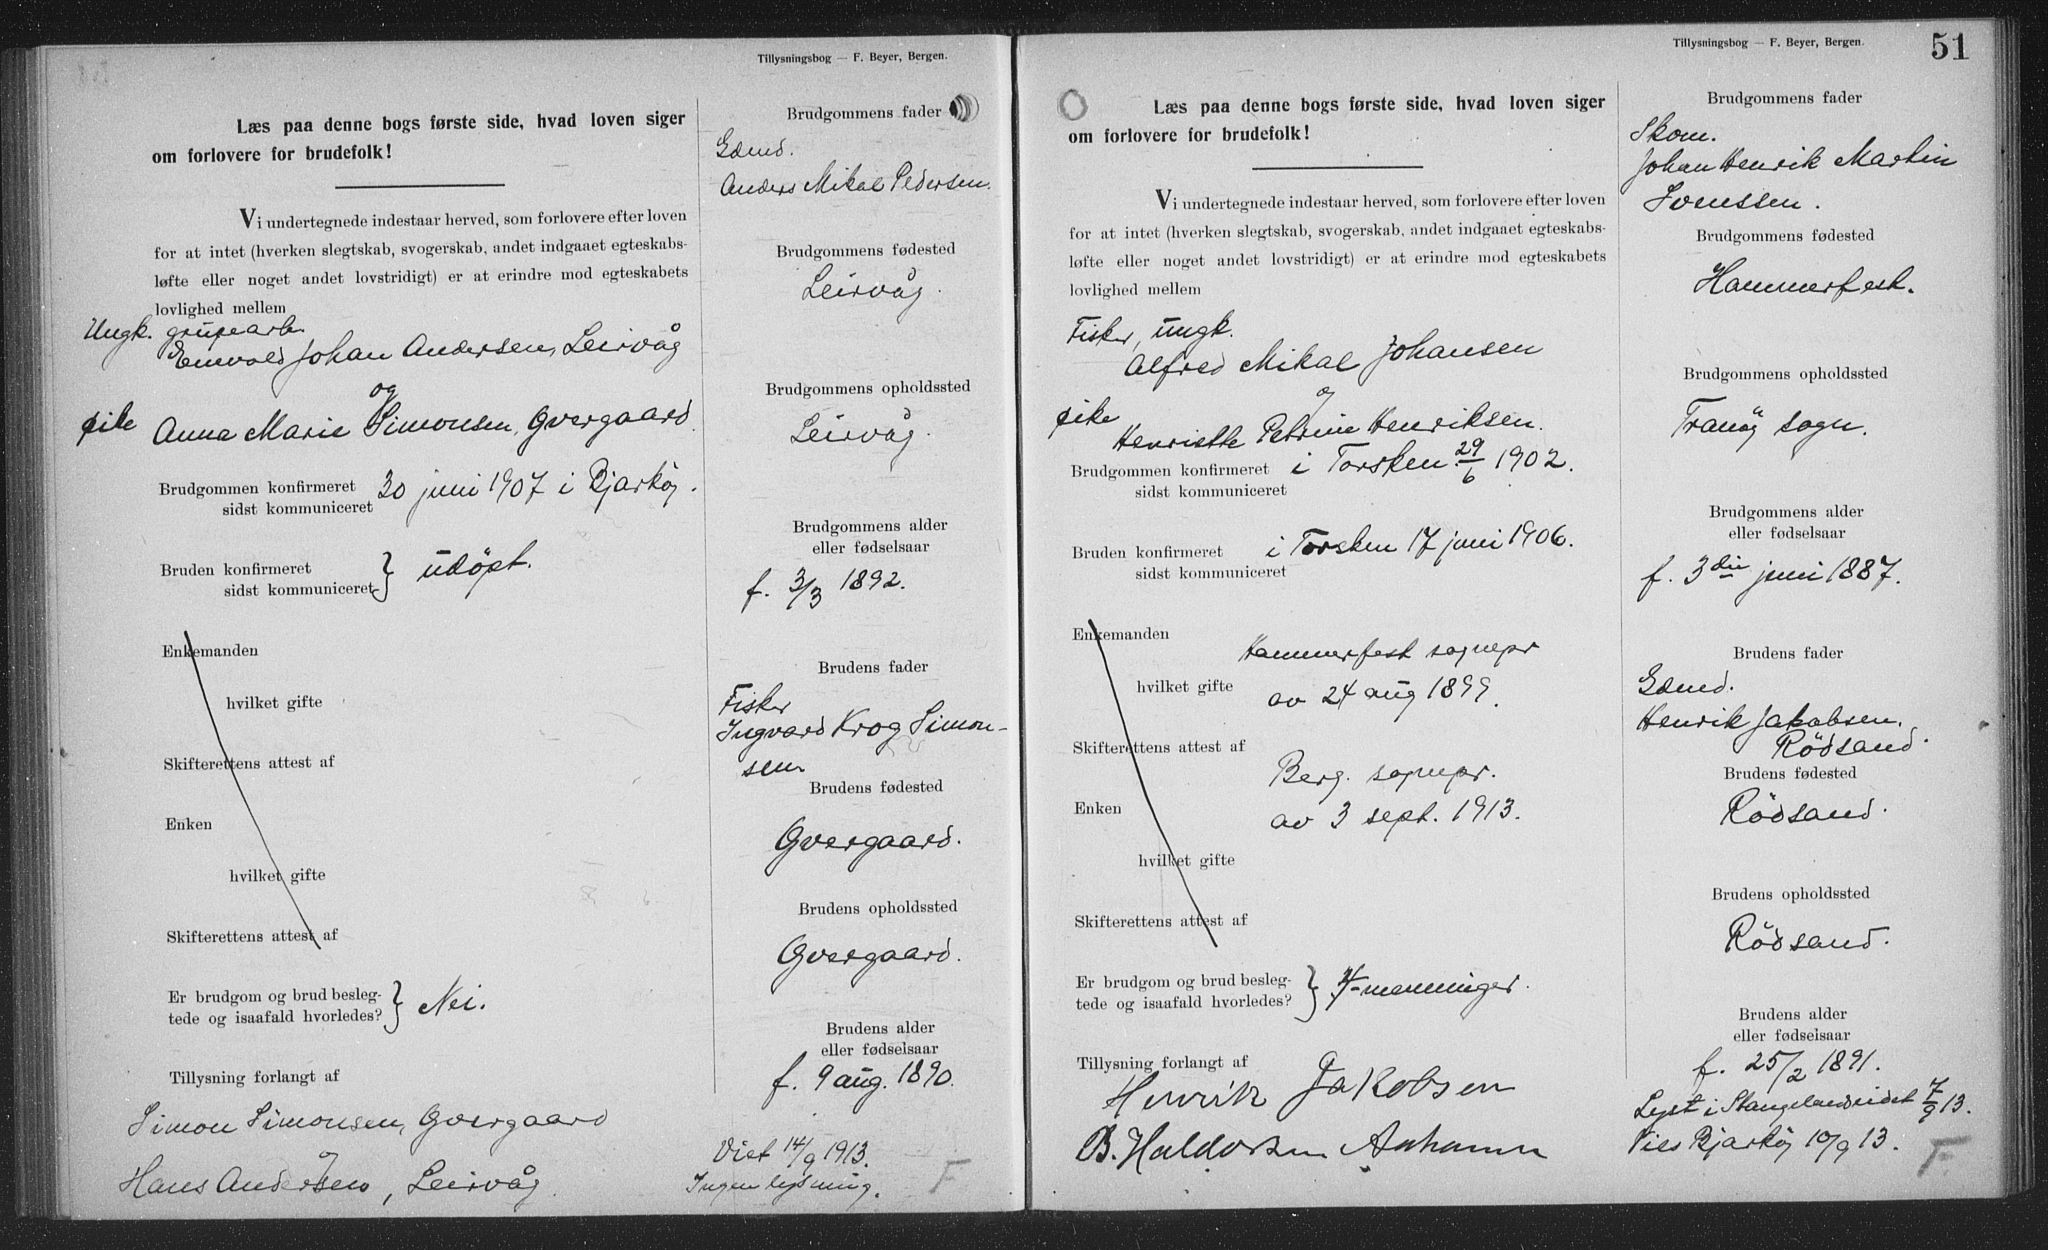 Tillysningsbog — F. Beyer, Bergen.
Læs paa denne bogs første side, hvad loven siger
om forlovere for brudefolk!
Vi undertegnede indestaar herved, som forlovere efter loven
for at intet (hverken slegtskab, svogerskab, andet indgaaet egteskabs-
løfte eller noget andet lovstridigt) er at erindre mod egteskabets
lovlighed mellem
Ungk. grubearb.
Emvald Johan Andersen, Leirvåg
og
pike Anna Marie Simonsen, Gvergaard.
Brudgommen konfirmeret 30 juni 1907 i Bjarköy.
sidst kommuniceret
Bruden konfirmeret } udöpt.
sidst kommuniceret
Enkemanden
hvilket gifte
Skifterettens attest af
Enken
hvilket gifte
Skifterettens attest af
Er brudgom og brud besleg-
tede og isaafald hvorledes? } Nei.
Tillysning forlangt af
Simon Simonsen, Gvergaard
Hans Andersen, Leirvåg
Brudgommens fader
Gdmd.
Anders Mikal Pedersen.
Brudgommens fødested
Leirvåg.
Brudgommens opholdssted
Leirvåg.
Brudgommens alder
eller fødselsaar
f. 3/3 1892.
Brudens fader
Fisker
Ingvard Krog Simon-
sen
Brudens fødested
Gvergaard.
Brudens opholdssted
Gvergaard.
Brudens alder
eller fødselsaar
f. 9 aug. 1890.
Viet 14/9 1913.
Ingen lysning.
F
Tillysningsbog — F. Beyer, Bergen.
51
Læs paa denne bogs første side, hvad loven siger
om forlovere for brudefolk!
Vi undertegnede indestaar herved, som forlovere efter loven
for at intet (hverken slegtskab, svogerskab, andet indgaaet egteskabs-
løfte eller noget andet lovstridigt) er at erindre mod egteskabets
lovlighed mellem
Fisker, ungk.
Alfred Mikal Johansen
og
pike
Henriette Petrine Henriksen.
Brudgommen konfirmeret i Torsken 29/6 1902.
sidst kommuniceret
Bruden konfirmeret i Torsken 17 juni 1906.
sidst kommuniceret
Enkemanden
Hammerfest sognepr
hvilket gifte av 24 aug 1899.
Skifterettens attest af
Berg. sognepr.
Enken av 3 sept. 1913.
hvilket gifte
Skifterettens attest af
Er brudgom og brud besleg-
tede og isaafald hvorledes? } 4-menninger.
Tillysning forlangt af
Henrik Jakobsen
B. Haldorsen
Brudgommens fader
Skom.
Johan Henrik Martin
Svenssen.
Brudgommens fødested
Hammerfest.
Brudgommens opholdssted
Tranöy sogn.
Brudgommens alder
eller fødselsaar
f. 3die juni 1887.
Brudens fader
Gdmd.
Henrik Jakobsen,
Rödsand.
Brudens fødested
Rödsand.
Brudens opholdssted
Rödsand.
Brudens alder
eller fødselsaar
f. 25/2 1891.
Lyst i Stangelandseidet 7/9 13.
Vies Bjarköy 10/9 13.
F.